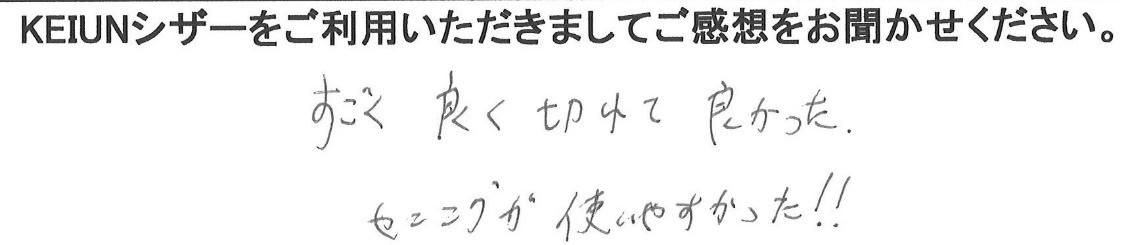 KEIUNシザーをご利用いただきましてご感想をお聞かせください。
すごく 良く 切れて 良かった.
セニングが 使いやすかった!!